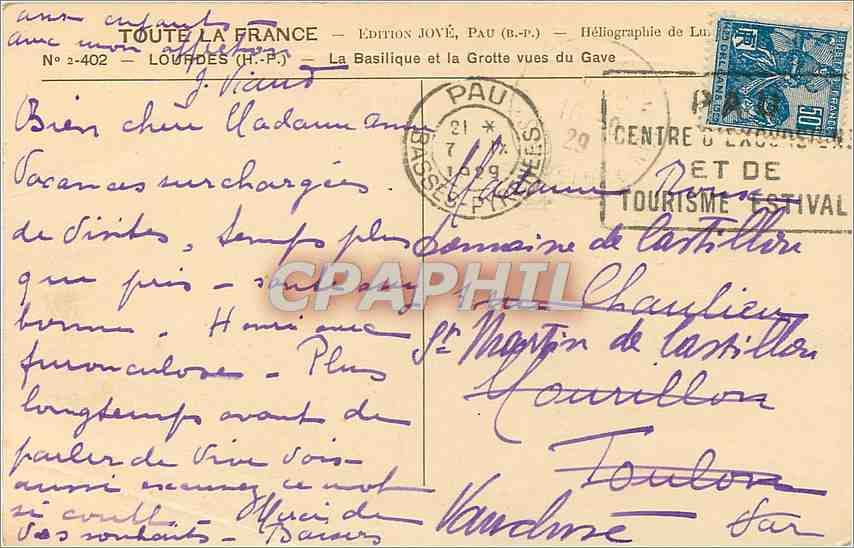 aux enfants
avec mon affection
J. Viaud
TOUTE LA FRANCE — EDITION JOVÉ, PAU (B.-P.) — Héliographie de Lux
N° 2-402 — LOURDES (H.-P.) — La Basilique et la Grotte vues du Gave
Bien chère Madame amie
Vacances surchargées
de visites, temps plus
que pris — santé
bonne. Henri avec
furonculose — Plus
longtemps avant de
parler de vive voix
aussi excusez ce mot
si court. Merci de
vos souhaits — Baisers
PAU
21 *
7 IX
1929
BASSES-PYRENEES
29
PAU
CENTRE D'EXCURSIONS
ET DE
TOURISME ESTIVAL
ORLEANS
50c
Madame Roux
Domaine de Castillon
rue Chaulieu
St Martin de Castillon
Mourillon
Toulon
Vaucluse Var
CPAPHIL